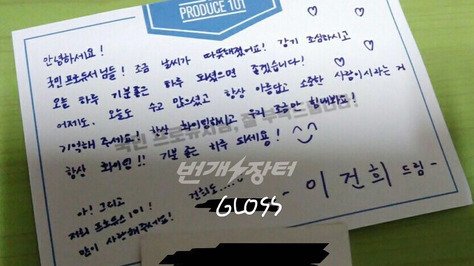 PRODUCE 101
안녕하세요!
국민 프로듀서님들! 조금 날씨가 따뜻해졌어요! 감기 조심하시고
오늘 하루 기분좋은 하루 되셨으면 좋겠습니다!
어제도, 오늘도 수고 많으셨고 항상 아름답고 소중한 사람이시라는 거
기억해 주세요! 항상 화이팅하시고 우리 조금만 힘내봐요!
국민 프로듀서님, 잘 부탁드립니다!
항상 화이팅!! 기분 좋은 하루 되세요!
번개장터
아! 그리고
저희 프로듀스 101!
많이 사랑해주세요!
건희도....
GLOSS
- 이건희 드림 -